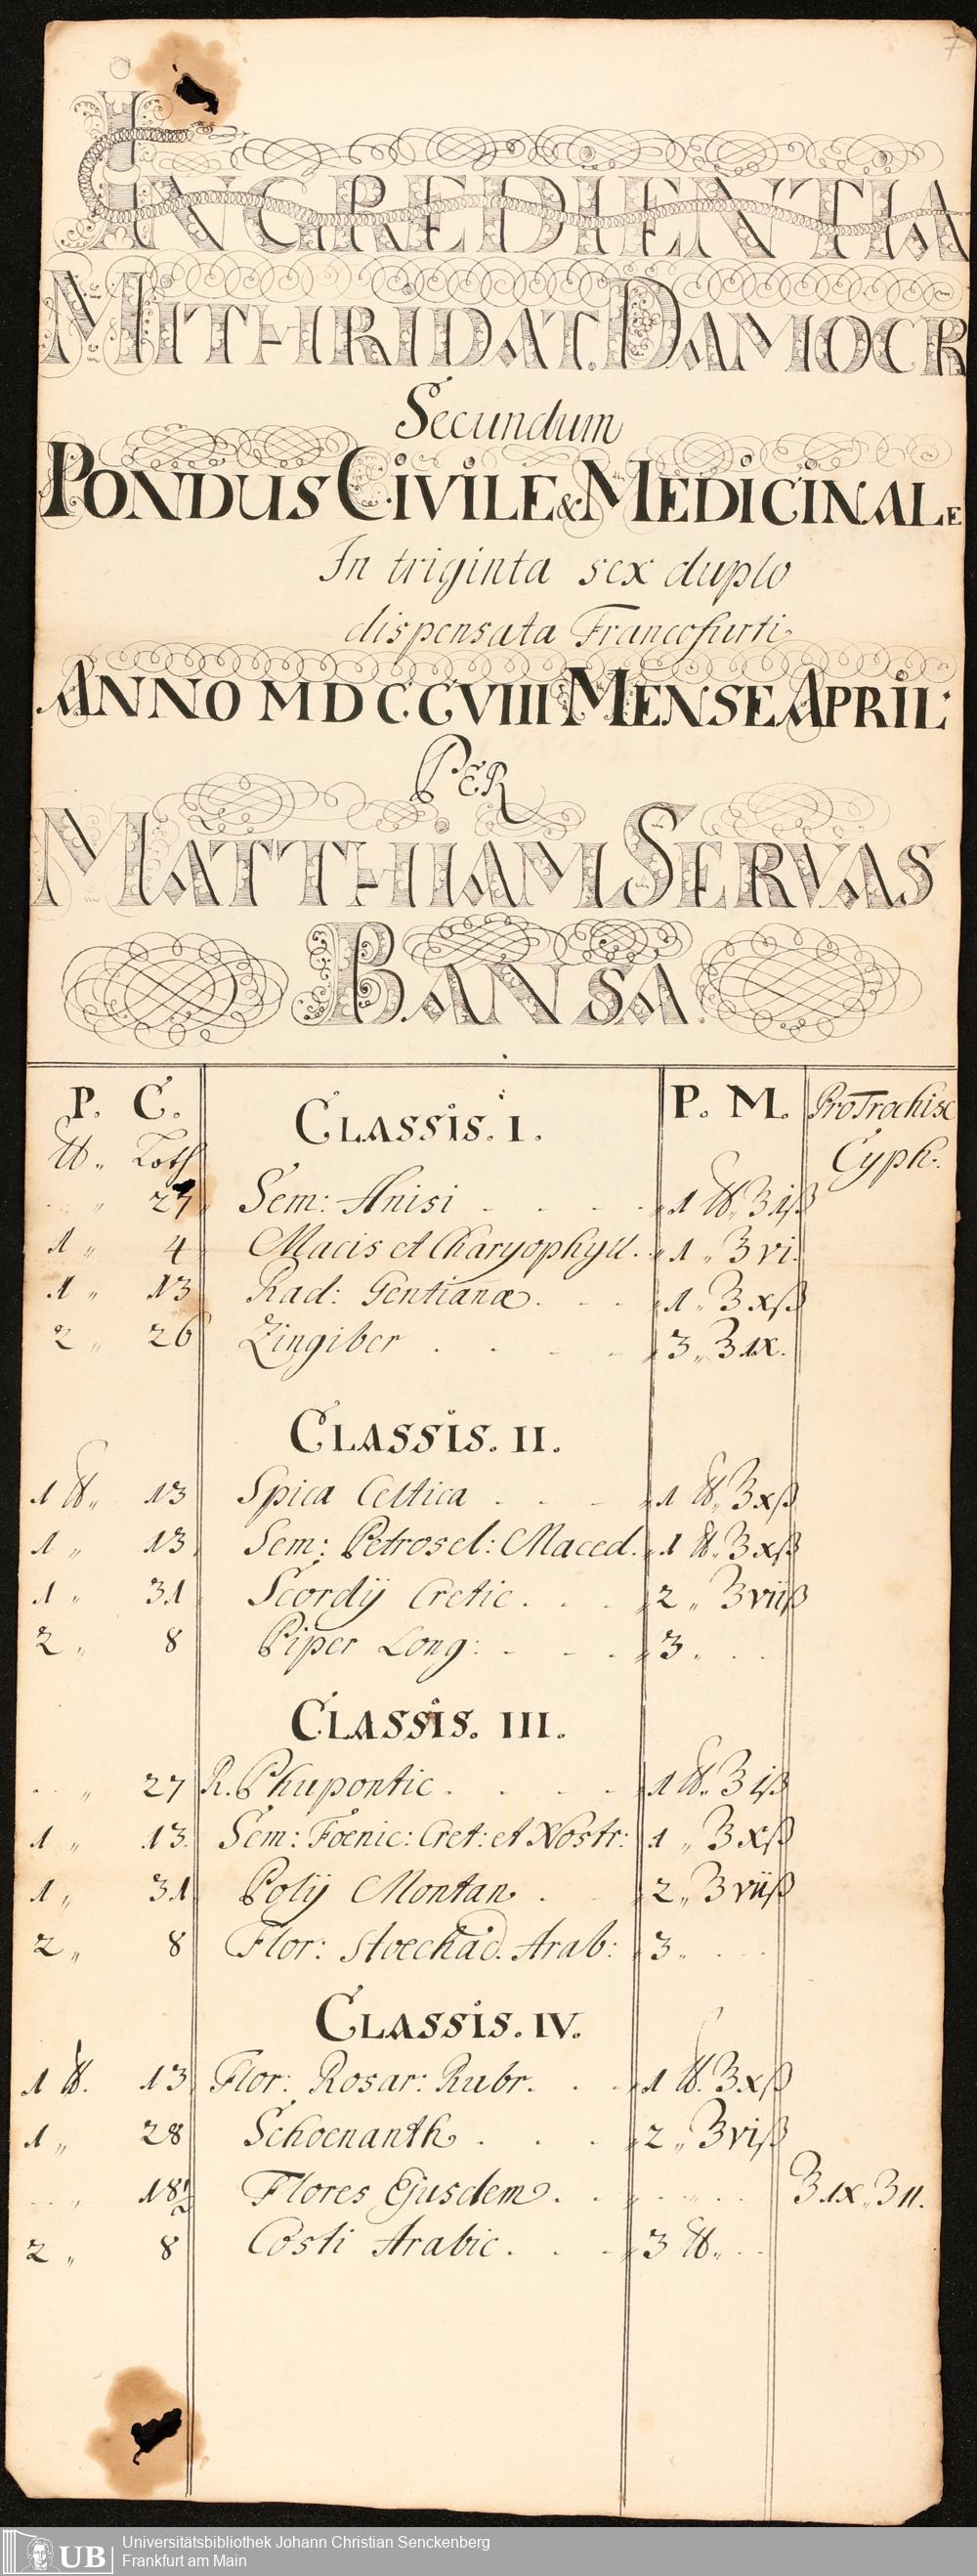 7
INGREDIENTIA
MITHRIDAT. DAMOCR
Secundum
PONDUS CIVILE & MEDICINALE
In triginta sex duplo
dispensata Francofurti
ANNO MDCCVIII MENSE APRIL:
PER
MATTHIAM SERVAS
BANSA.
P. C. CLASSIS. I. P. M. Pro Trochisc
℔.. Loth Cyph:
.. „ 27 Sem: Anisi - - - - 1 ℔.. ℥ iß
1 „ 4 Macis et Charyophyll. - 1 „ ℥ vi.
1 „ 13 Rad: Gentianæ. - - 1 „ ℥ xß
2 „ 26 Zingiber - - - - 3 „ ℥ ix.
CLASSIS. II.
1 ℔.. 13 Spica Celtica - - - 1 ℔.. ℥ xß
1 „ 13 Sem: Petrosel: Maced. 1 ℔.. ℥ xß
1 „ 31 Scordij Cretic. - - 2 „ ℥ viiß
2 „ 8 Piper Long: - - - 3. . .
CLASSIS. III.
.. „ 27 R. Rhupontic. - - - 1 ℔.. ℥ iß
1 „ 13. Sem: Fœnic: Cret: et Nostr: 1 „ ℥ xß
1 „ 31 Polij Montan. - 2 „ ℥ viiß
2 „ 8 Flor: Stoechad. Arab: 3 „ . .
CLASSIS. IV.
1 ℔. 13 Flor: Rosar: Rubr. - - 1 ℔. ℥ xß
1 „ 28 Schoenanth. - - - 2 „ ℥ viß
.. „ 18½ Flores Ejusdem. - - . . . ℥ ix „ ʒ ii.
2 „ 8 Costi Arabic. - - - 3 ℔. . .
UB
Universitätsbibliothek Johann Christian Senckenberg
Frankfurt am Main